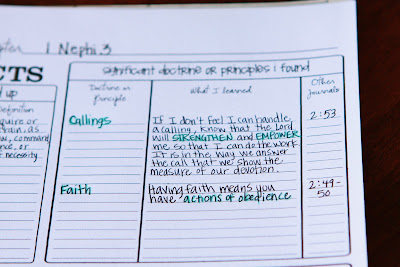 1 Nephi 3
CTS
significant doctrine or principles i found
d up
Doctrine or
Principle
What I learned
Other
Journals
Definition
quire or
train, as
w, command
nce, or
necessity.
Callings
If I don't feel I can handle
a calling, know that the Lord
will STRENGTHEN and EMPOWER
me so that I can do the work
It is in the way we answer
the call that we show the
measure of our devotion.
2:53
Faith
Having faith means you
have actions of obedience
2:49-
50